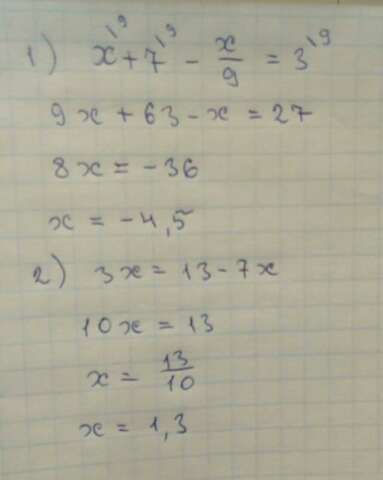 1) x^{\9} + 7^{\9} - x/9 = 3^{\9}
9x + 63 - x = 27
8x = -36
x = -4,5
2) 3x = 13 - 7x
10x = 13
x = 13/10
x = 1,3